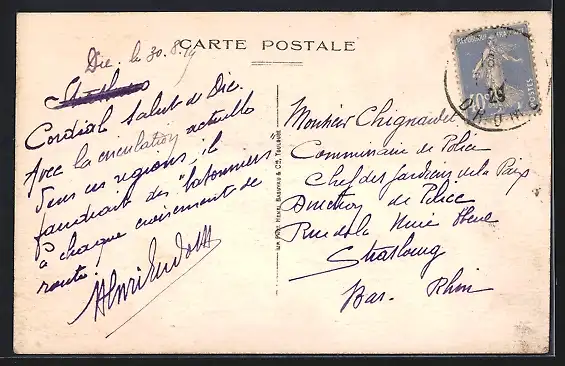 CARTE POSTALE
Die. le 30.8.
Cordial Salut de Die.
Avec la circulation actuelle
dans ces régions, il
faudrait des "batonniers"
à chaque croisement de
route!
IMP. PHOT. HENRI BASUYAU & Cie, TOULOUSE
Monsieur Chignardet
Commissaire de Police
Chef des Gardiens de la Paix
Direction de Police
Rue de la Nuée Bleue
Strasbourg
Bas. Rhin
RÉPUBLIQUE
POSTES
29
DROME